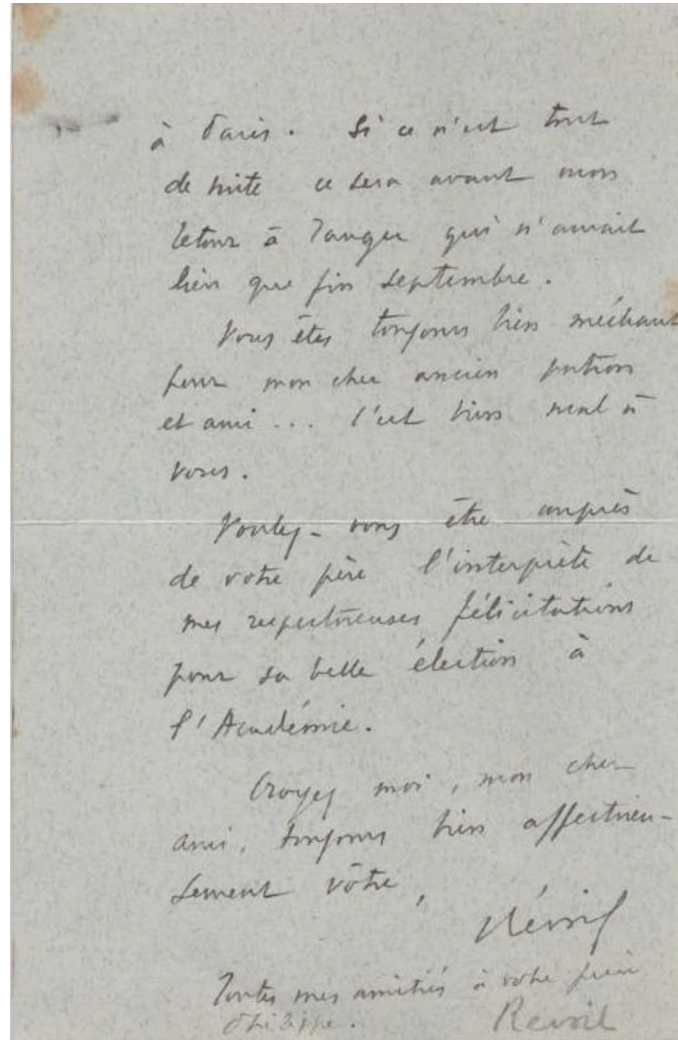 à Paris. Si ce n'est tout
de suite ce sera avant mon
retour à Tanger qui n'aurait
lieu que fin septembre.
Vous êtes toujours bien méchant
pour mon cher ancien patron
et ami... C'est bien mal à
vous.
Voulez-vous être auprès
de votre père l'interprète de
mes respectueuses félicitations
pour sa belle élection à
l'Académie.
Croyez moi, mon cher
ami, toujours bien affectueu-
sement vôtre,
Révoil
Toutes mes amitiés à votre frère
Philippe. Revoil